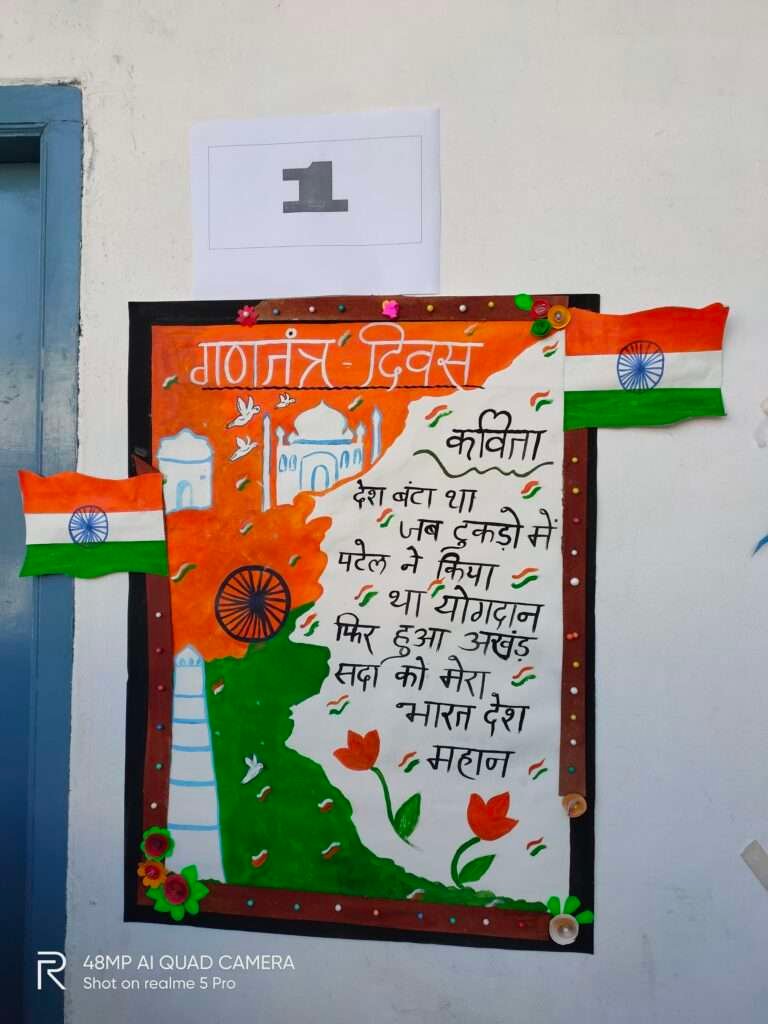 1
गणतंत्र - दिवस
कविता
देश बंटा था
जब टुकड़ो में
पटेल ने किया
था योगदान
फिर हुआ अखंड़
सर्दा को मेरा
भारत देश
महान
48MP AI QUAD CAMERA
Shot on realme 5 Pro